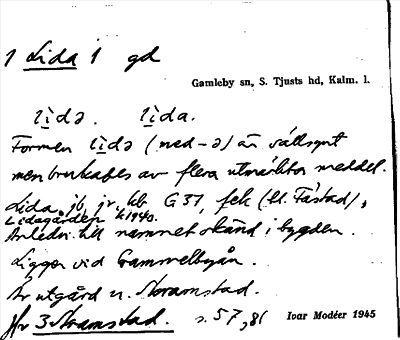 1 Lida 1 gd
Gamleby sn, S. Tjusts hd, Kalm. l.
lìdə. lìda.
Formen lìdə (med -ə) är sällsynt
men brukades av flera utmärkta meddel.
Lida, jb, jr, kb G 31, fek (bl. Fåstad),
Lidagården k 1940.
Anledn. till namnet okänd i bygden.
Ligger vid Gammelbyån.
Är utgård u. Noramstad.
Jfr 3 Noramstad. s. 57, 81 Ivar Modéer 1945